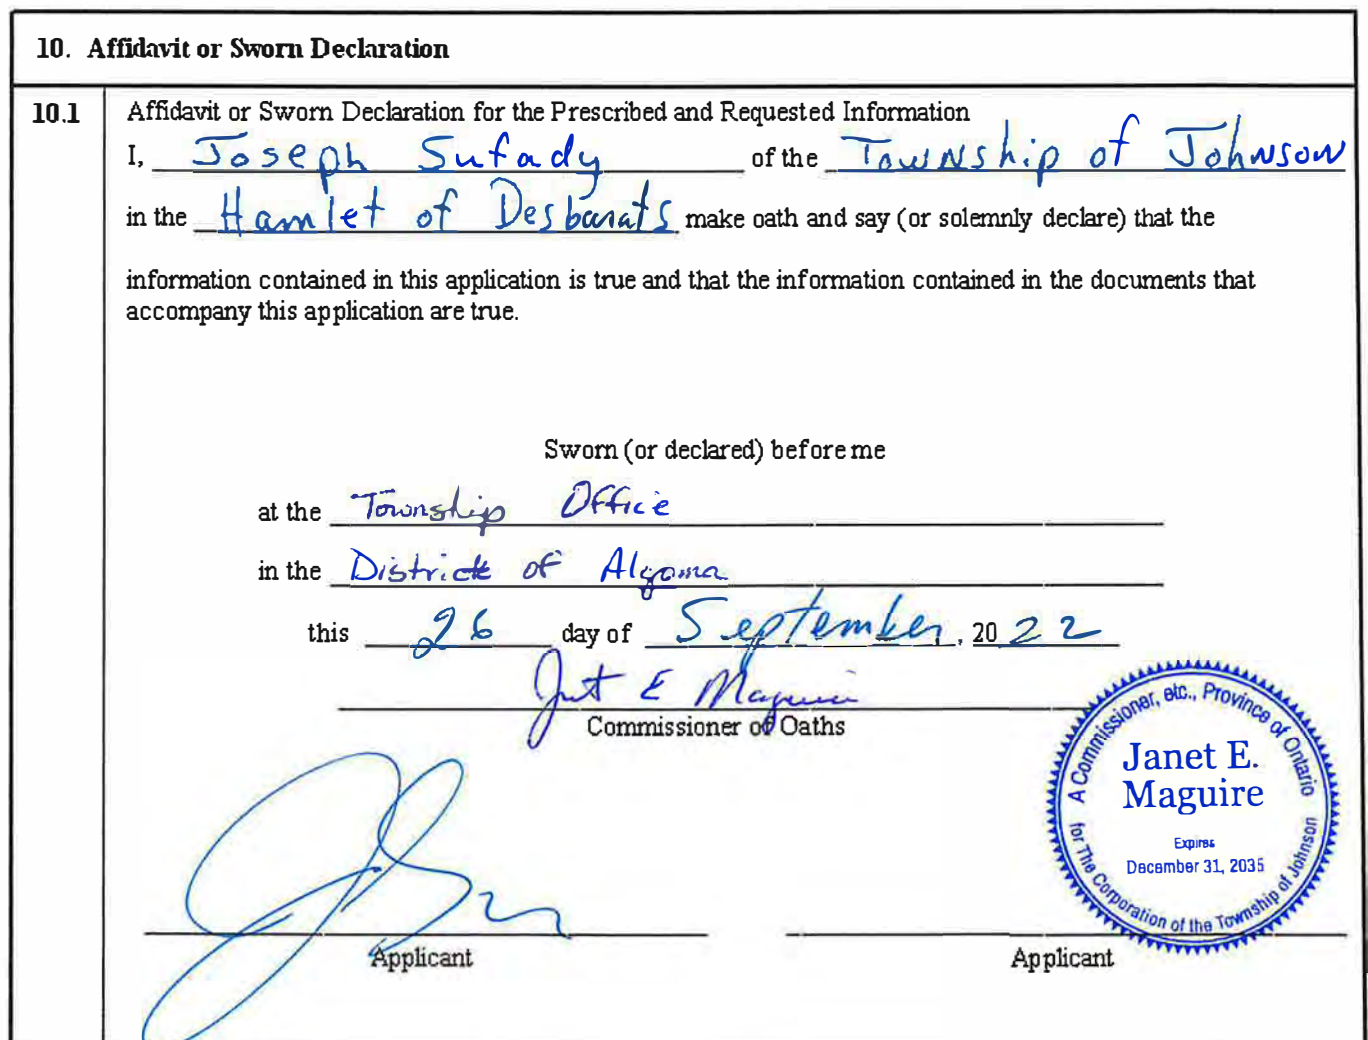 10. Affidavit or Sworn Declaration
10.1 Affidavit or Sworn Declaration for the Prescribed and Requested Information
I, Joseph Sufady of the Township of Johnson
in the Hamlet of Desbarats make oath and say (or solemnly declare) that the
information contained in this application is true and that the information contained in the documents that
accompany this application are true.
Sworn (or declared) before me
at the Township Office
in the District of Algoma
this 26 day of September, 20 22
Janet E Maguire
Commissioner of Oaths
A Commissioner, etc., Province of Ontario
Janet E.
Maguire
Expires
December 31, 2035
for The Corporation of the Township of Johnson
Applicant Applicant